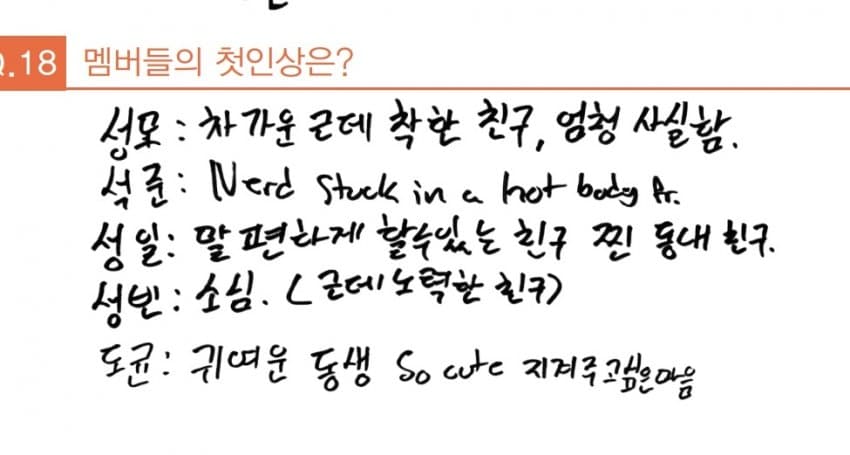 Q.18 멤버들의 첫인상은?
성모 : 차가운 근데 착한 친구, 엄청 사실함.
석준 : Nerd stuck in a hot body
성일 : 말 편하게 할수있는 친구 찐 동내 친구.
성빈 : 소심. (근데 노력한 친구)
도균 : 귀여운 동생 So cute 지켜주고싶은마음